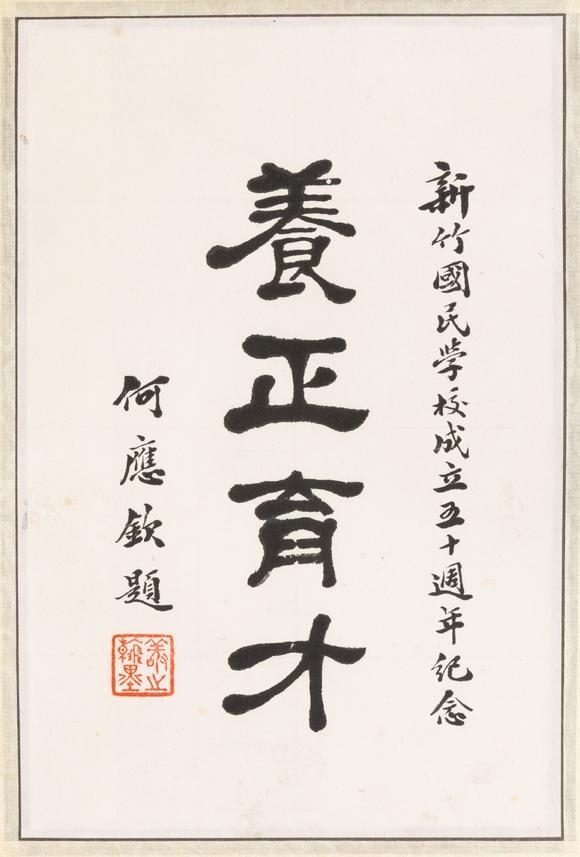 新竹國民學校成立五十週年紀念
養正育才
何應欽題
敬之翰墨